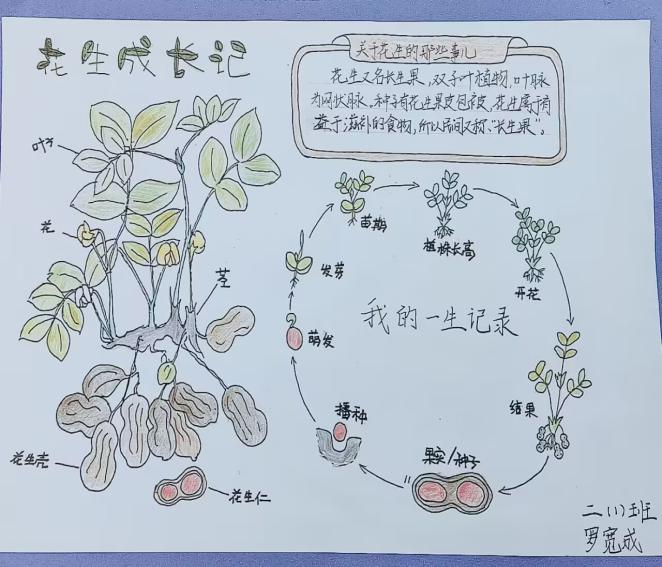 花生成长记
关于花生的那些事儿
花生又名长生果,双子叶植物,叶脉
为网状脉,种子有花生果皮包被,花生属于有
益于滋补的食物,所以民间又称:“长生果”。
叶子
花
茎
花生壳
花生仁
我的一生记录
播种
萌发
发芽
苗期
植株长高
开花
结果
果实/种子
二(1)班
罗宽成